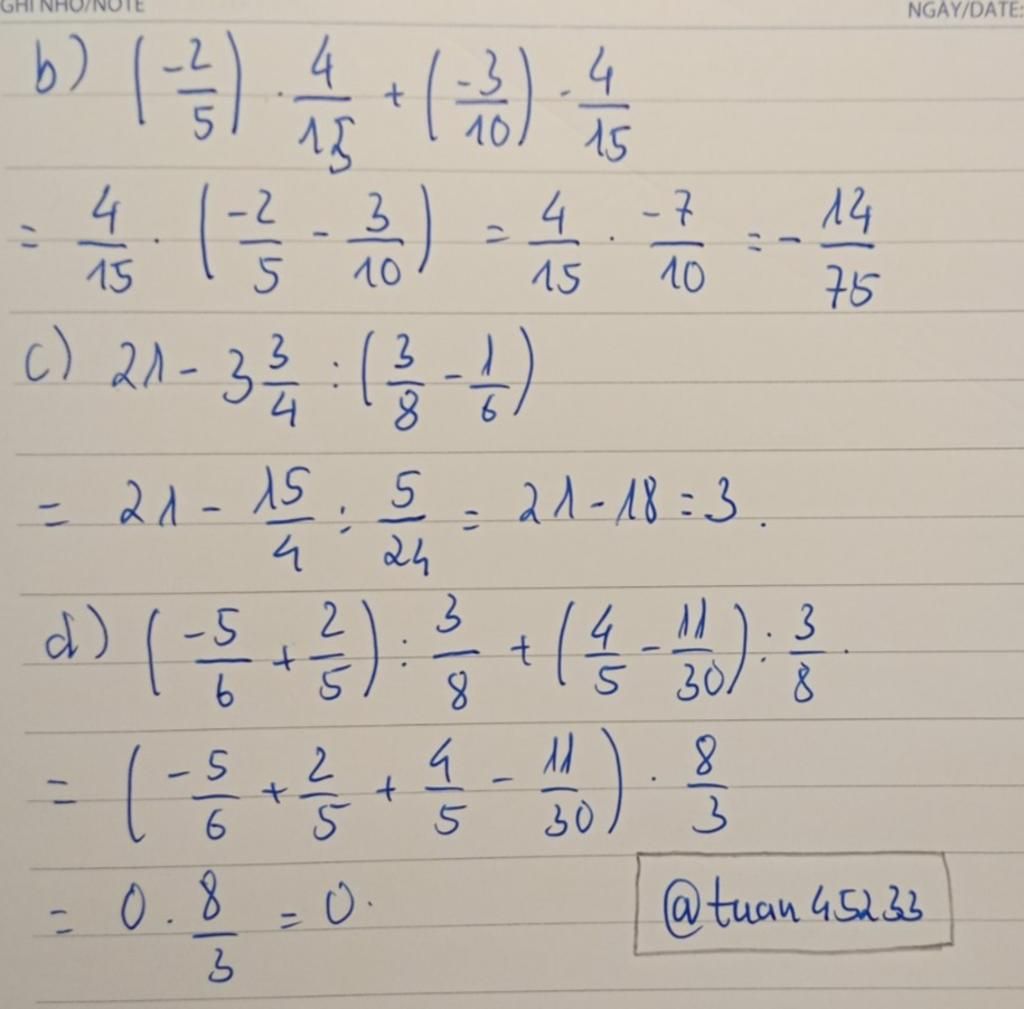 GHI NHỚ/NOTE NGÀY/DATE:
b) (-2/5) · 4/15 + (-3/10) · 4/15
= 4/15 · (-2/5 - 3/10) = 4/15 · -7/10 = - 14/75
c) 21 - 3 3/4 : (3/8 - 1/6)
= 21 - 15/4 : 5/24 = 21 - 18 = 3.
d) (-5/6 + 2/5) : 3/8 + (4/5 - 11/30) : 3/8.
= (-5/6 + 2/5 + 4/5 - 11/30) · 8/3
= 0 · 8/3 = 0.
@tuan45233